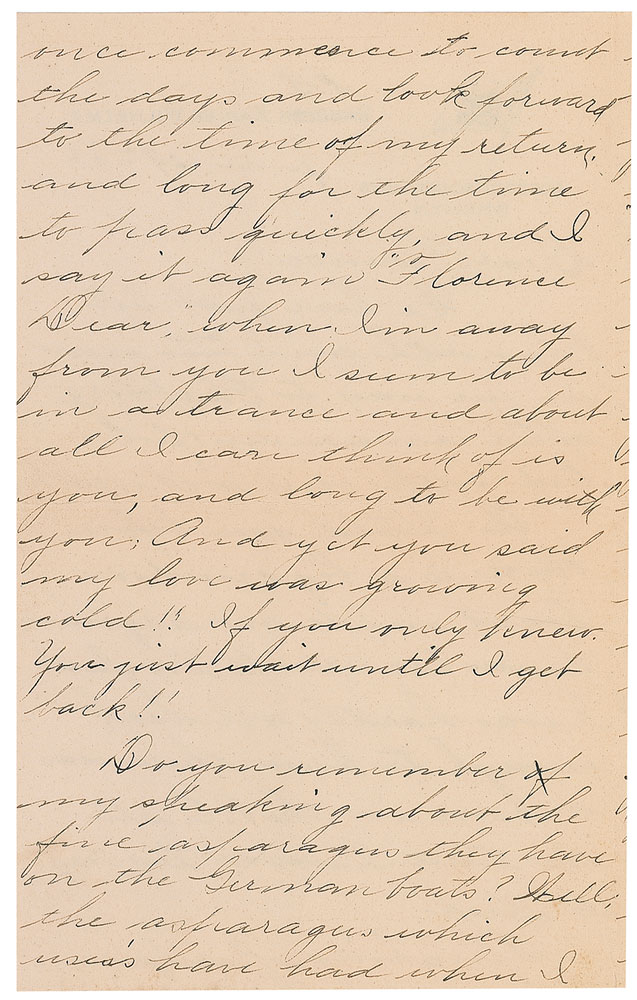 once commence to count
the days and look forward
to the time of my return,
and long for the time
to pass quickly, and I
say it again "Florence
Dear," when I'm away
from you I seem to be
in a trance and about
all I can think of is
you, and long to be with
you; And yet you said
my love was growing
cold!! If you only knew.
You just wait until I get
back!!
Do you remember of
my speaking about the
fine asparagus they have
on the German boats? Well,
the asparagus which
have had when I